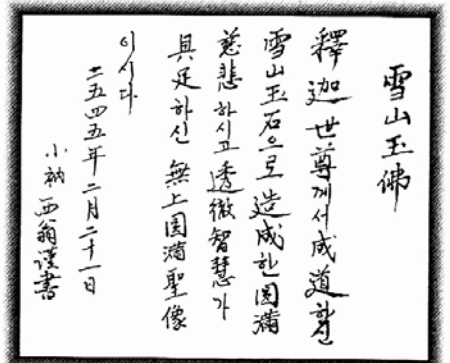 雪山玉佛
釋迦世尊께서成道하신
雪山玉石으로造成한圓滿
慈悲하시고透徹智慧가
具足하신 無上圓滿聖像
이시다
二五四五年二月二十一日
小衲 西翁謹書